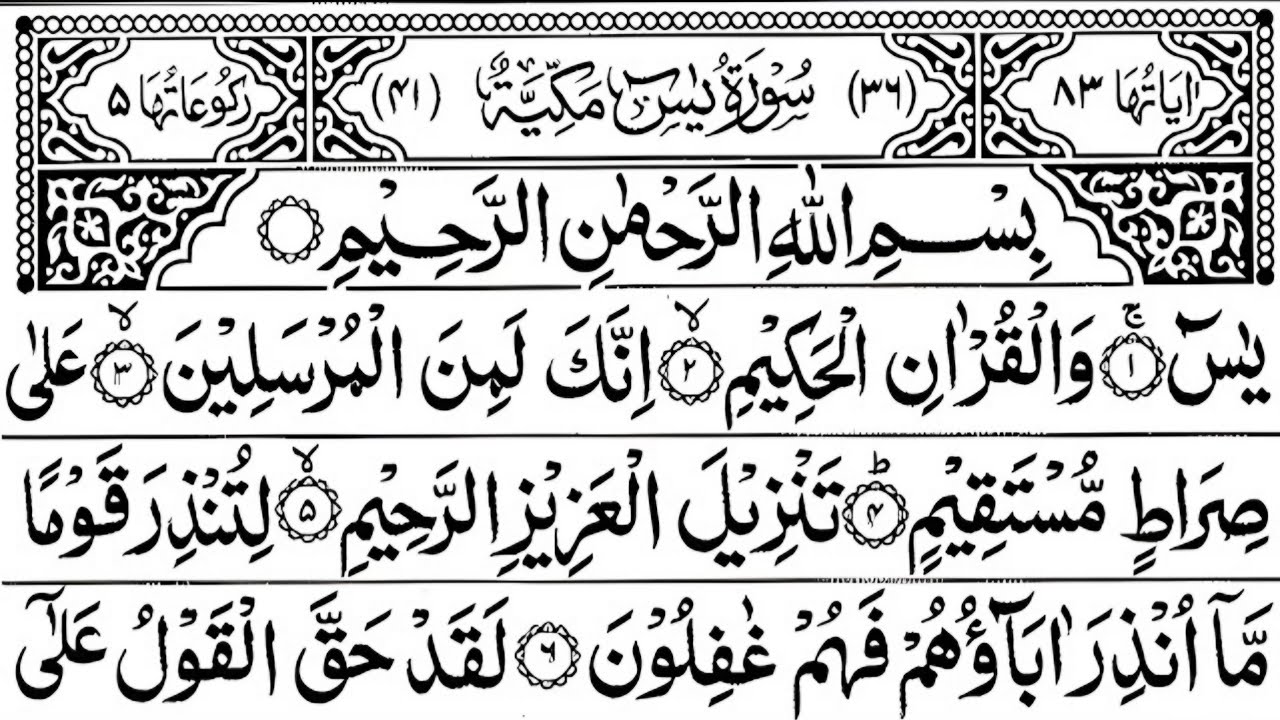 اٰیَاتُهَا ۸۳ (۳۶) سُوْرَةُ يٰسٓ مَكِّيَّةٌ (۴۱) رُكُوْعَاتُهَا ۵
بِسْمِ اللّٰهِ الرَّحْمٰنِ الرَّحِيْمِ
يٰسٓ ۚ‏﴿۱﴾ وَالْقُرْاٰنِ الْحَكِيْمِ ۙ‏﴿۲﴾ اِنَّكَ لَمِنَ الْمُرْسَلِيْنَ ۙ‏﴿۳﴾ عَلٰى
صِرَاطٍ مُّسْتَقِيْمٍ ؕ‏﴿۴﴾ تَنْزِيْلَ الْعَزِيْزِ الرَّحِيْمِ ۙ‏﴿۵﴾ لِتُنْذِرَ قَوْمًا
مَّاۤ اُنْذِرَ اٰبَآؤُهُمْ فَهُمْ غٰفِلُوْنَ ﴿۶﴾ لَقَدْ حَقَّ الْقَوْلُ عَلٰٓى